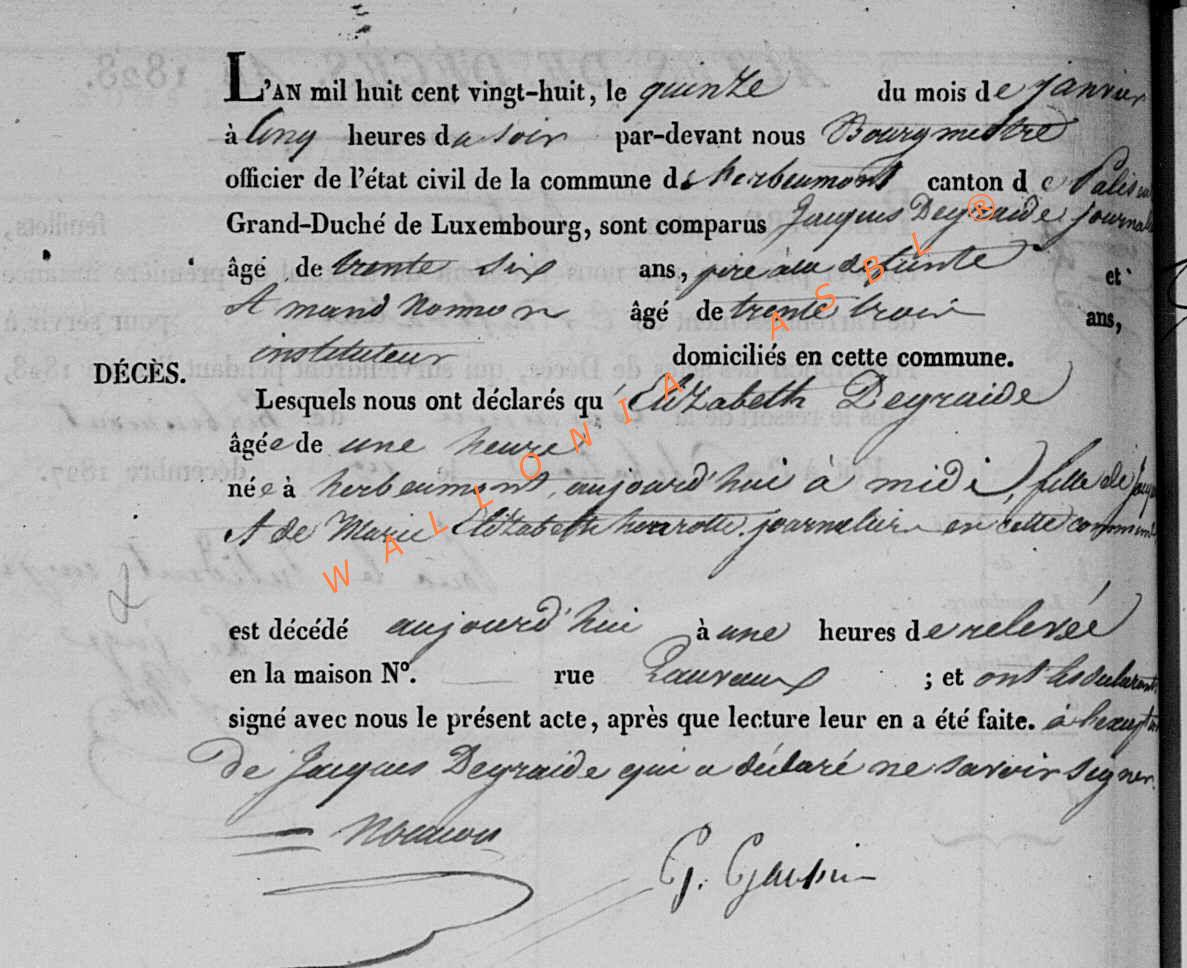 L'AN mil huit cent vingt-huit, le quinze du mois de janvier
à cinq heures du soir par-devant nous Bourgmestre
officier de l'état civil de la commune de herbeumont canton de Paliseul
Grand-Duché de Luxembourg, sont comparus Jacques Degraide journali
âgé de trente six ans, pere a la defunte et
Amand Nomon âgé de trente trois ans,
instituteur domiciliés en cette commune.
DÉCÈS.
Lesquels nous ont déclarés qu' Elizabeth Degraide
âgée de une heure
née à herbeumont, aujourd'hui à midi, fille de Jacques
et de Marie Elizabeth henrotte journalier en cette commune
est décédé aujourd'hui à une heures de relevée
en la maison N°. — rue Lauvaux ; et ont les declarants
signé avec nous le présent acte, après que lecture leur en a été faite. à l'exception
de Jacques Degraide qui a déclaré ne savoir signer.
WALLONIA ASBL ®